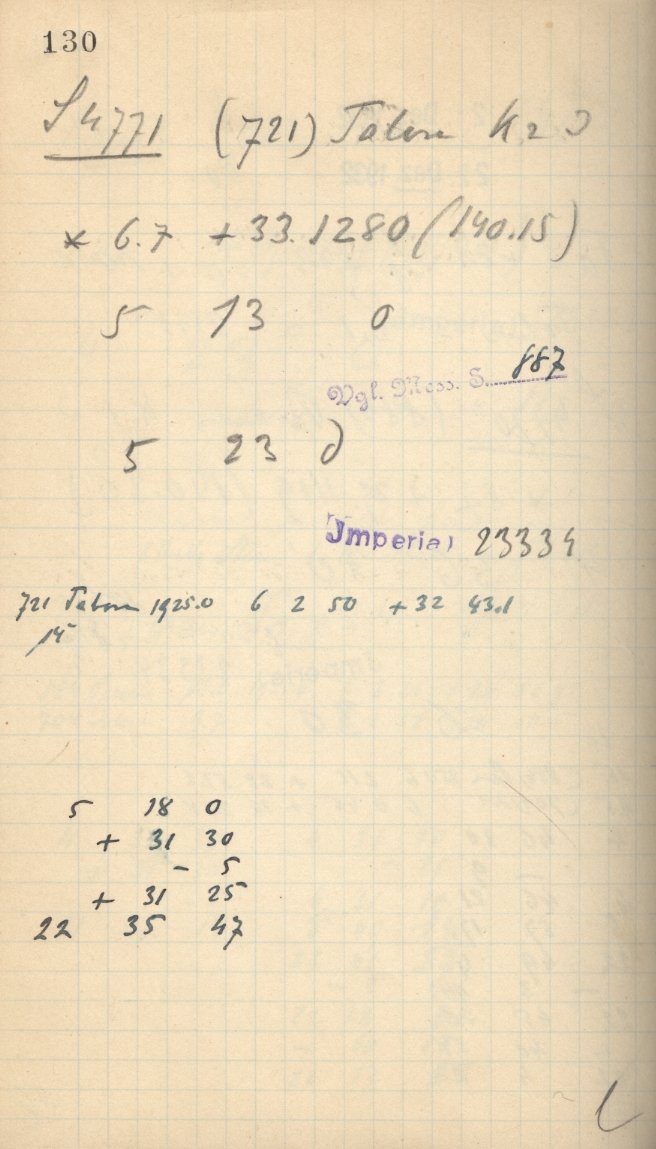 130
S 4771 (721) Tabora K 2 0
* 6.7 + 33.1280 (140.15)
5 13 0
Vgl. Mess. S. 887
5 23 0
Imperial 23334
721 Tabora 1925.0 6 2 50 + 32 43.1
14
5 18 0
+ 31 30
- 5
+ 31 25
22 35 47